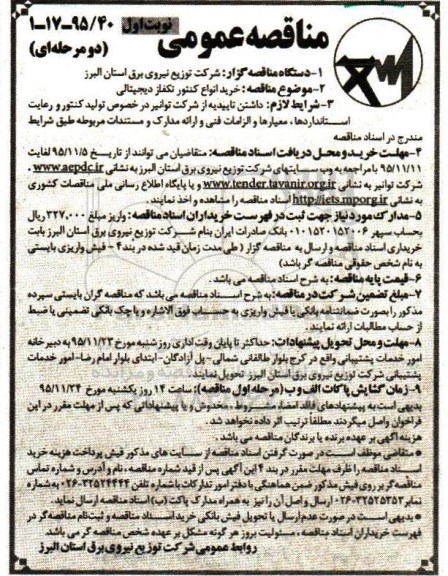 مناقصه عمومی
نوبت اول
۱-۱۷-۹۵/۴۰
(دو مرحله‌ای)
۱-دستگاه مناقصه گزار: شرکت توزیع نیروی برق استان البرز
۲-موضوع مناقصه: خرید انواع کنتور تکفاز دیجیتالی
۳- شرایط لازم: داشتن تاییدیه از شرکت توانیر در خصوص تولید کنتور و رعایت
استانداردها، معیارها و الزامات فنی و ارائه مدارک و مستندات مربوطه طبق شرایط
مندرج در اسناد مناقصه
۴-مهلت خرید و محل دریافت اسناد مناقصه: متقاضیان می توانند از تاریخ ۹۵/۱۱/۵ لغایت
۹۵/۱۱/۱۱ با مراجعه به وب سایتهای شرکت توزیع نیروی برق استان البرز به نشانی www.aepdc.ir ،
شرکت توانیر به نشانی www.tender.tavanir.org.ir و یا پایگاه اطلاع رسانی ملی مناقصات کشوری
به نشانی http://iets.mporg.ir اسناد مناقصه را مشاهده و اخذ نمایند.
۵-مدارک مورد نیاز جهت ثبت در فهرست خریداران اسناد مناقصه: واریز مبلغ ۳۲۷،۰۰۰ ریال
بحساب سپهر ۰۱۰۱۵۲۰۱۵۲۰۰۶ بانک صادرات ایران بنام شرکت توزیع نیروی برق استان البرز بابت
خریداری اسناد مناقصه و ارسال به مناقصه گزار (طی مدت زمان قید شده در بند۴ - فیش واریزی بایستی
به نام شخص حقوقی مناقصه گر باشد)
۶-قیمت پایه مناقصه: به شرح اسناد مناقصه می باشد.
۷-مبلغ تضمین شرکت در مناقصه: به شرح اسناد مناقصه می باشد که مناقصه گران بایستی سپرده
مذکور را بصورت ضمانتنامه بانکی یا فیش واریزی به حساب فوق الاشاره و یا چک بانکی تضمینی یا ضبط
از حساب مطالبات ارائه نمایند.
۸-مهلت و محل تحویل پیشنهادات: حداکثر تا پایان وقت اداری روز شنبه مورخ ۹۵/۱۱/۲۳ به دبیرخانه
امور خدمات پشتیبانی واقع در کرج بلوار طالقانی شمالی-پل آزادگان-ابتدای بلوار امام رضا-امور خدمات
پشتیبانی شرکت توزیع نیروی برق استان البرز تحویل نمایند.
۹- زمان گشایش پاکات الف و ب (مرحله اول مناقصه): ساعت ۱۴ روز یکشنبه مورخ ۹۵/۱۱/۲۴
بدیهی است به پیشنهادهای فاقد امضاء، مشروط، مخدوش و یا پیشنهاداتی که پس از مهلت مقرر در این
فراخوان واصل میگردند مطلقاً ترتیب اثر داده نخواهد شد.
هزینه آگهی بر عهده برنده یا برندگان مناقصه می باشد.
• متقاضی موظف است در صورت گرفتن اسناد مناقصه از سایت های مذکور فیش پرداخت هزینه خرید
اسناد مناقصه را ظرف مهلت مقرر در بند ۴ این آگهی پس از قید شماره مناقصه، نام و آدرس و شماره تماس
مناقصه گر بر روی فیش مذکور ضمن هماهنگی با دفتر امور تدارکات با شماره تلفن ۳۲۵۲۴۴۴۴-۰۲۶ به شماره
نمابر ۳۲۵۲۵۳۵۲-۰۲۶ ارسال و اصل آن را نیز به همراه مدارک پاکت (ب) اسناد مناقصه ارسال نمایند.
• بدیهی است در صورت عدم ارسال یا تحویل فیش بانکی خرید اسناد مناقصه و ثبت نام مناقصه گر در
فهرست خریداران اسناد مناقصه، مسئولیت بروز هر گونه مشکل بر عهده شخص مناقصه گر می باشد.
روابط عمومی شرکت توزیع نیروی برق استان البرز